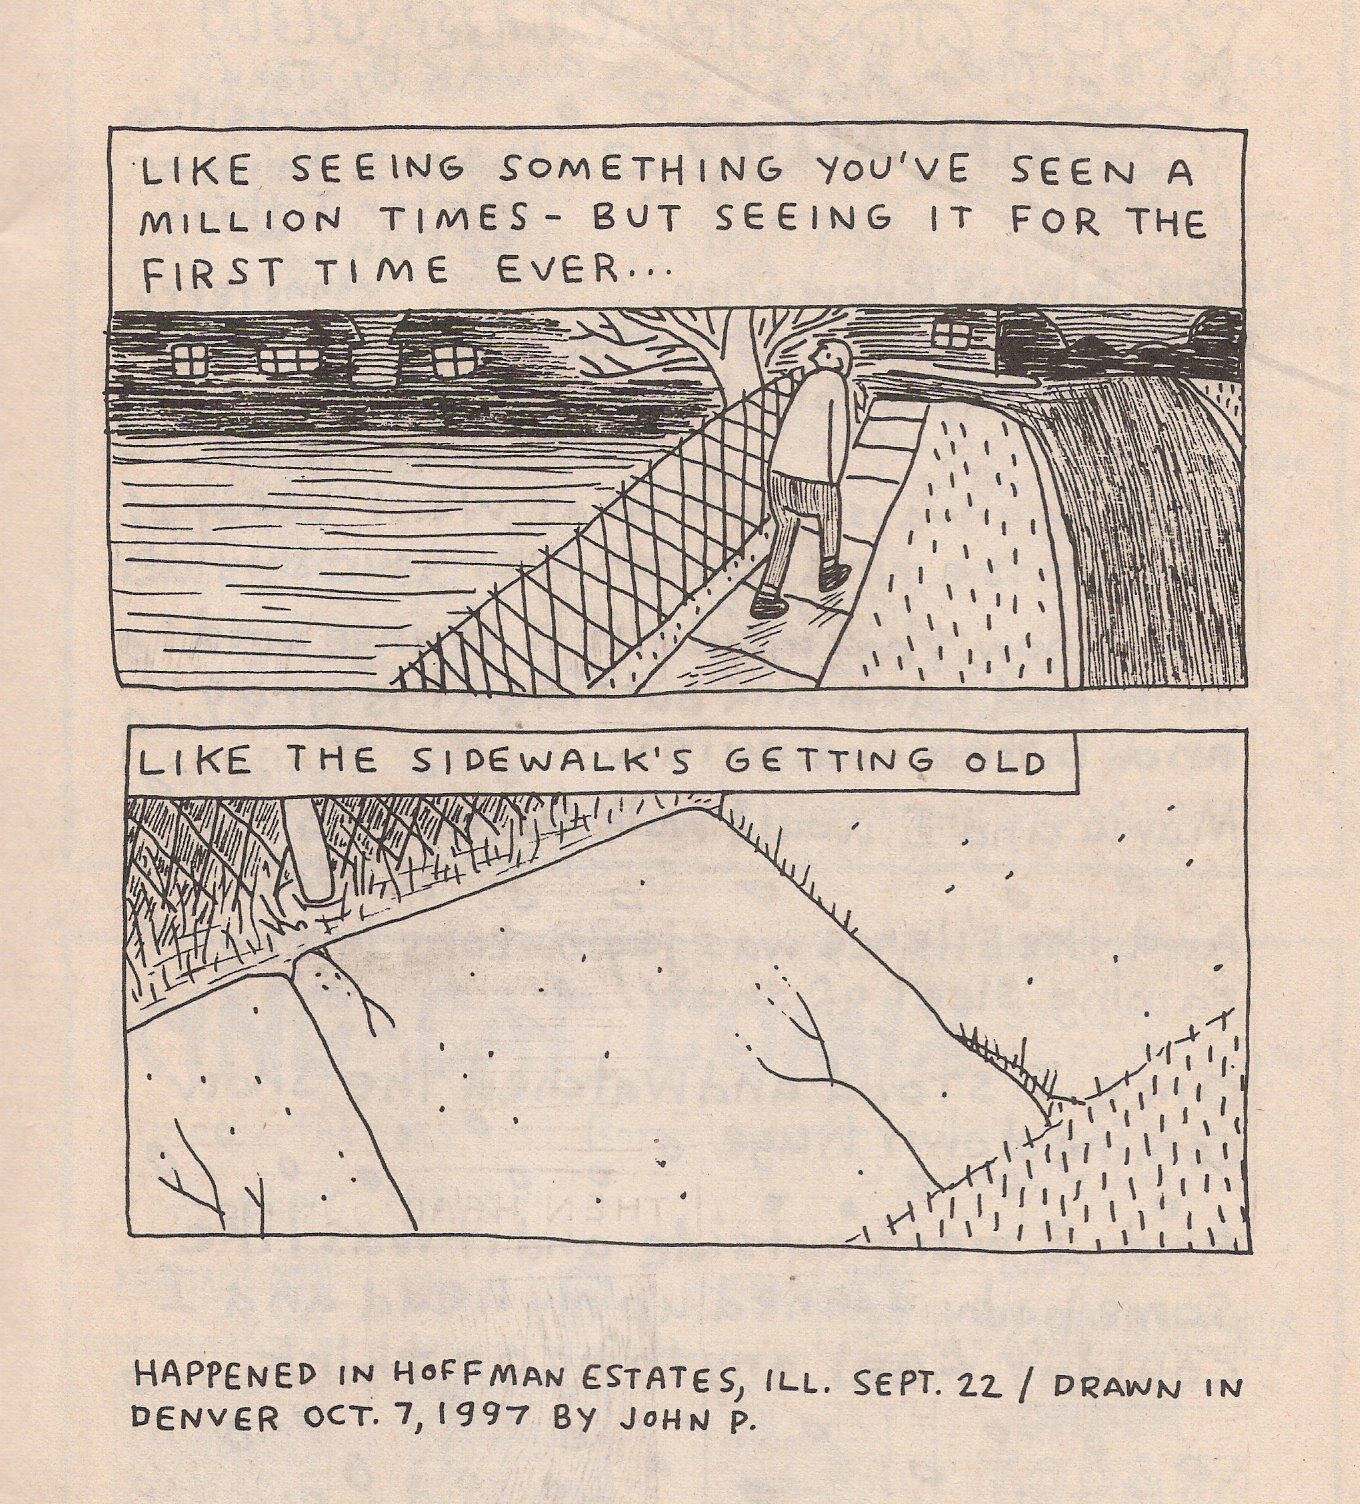 LIKE SEEING SOMETHING YOU'VE SEEN A
MILLION TIMES - BUT SEEING IT FOR THE
FIRST TIME EVER...
LIKE THE SIDEWALK'S GETTING OLD
HAPPENED IN HOFFMAN ESTATES, ILL. SEPT. 22 / DRAWN IN
DENVER OCT. 7, 1997 BY JOHN P.